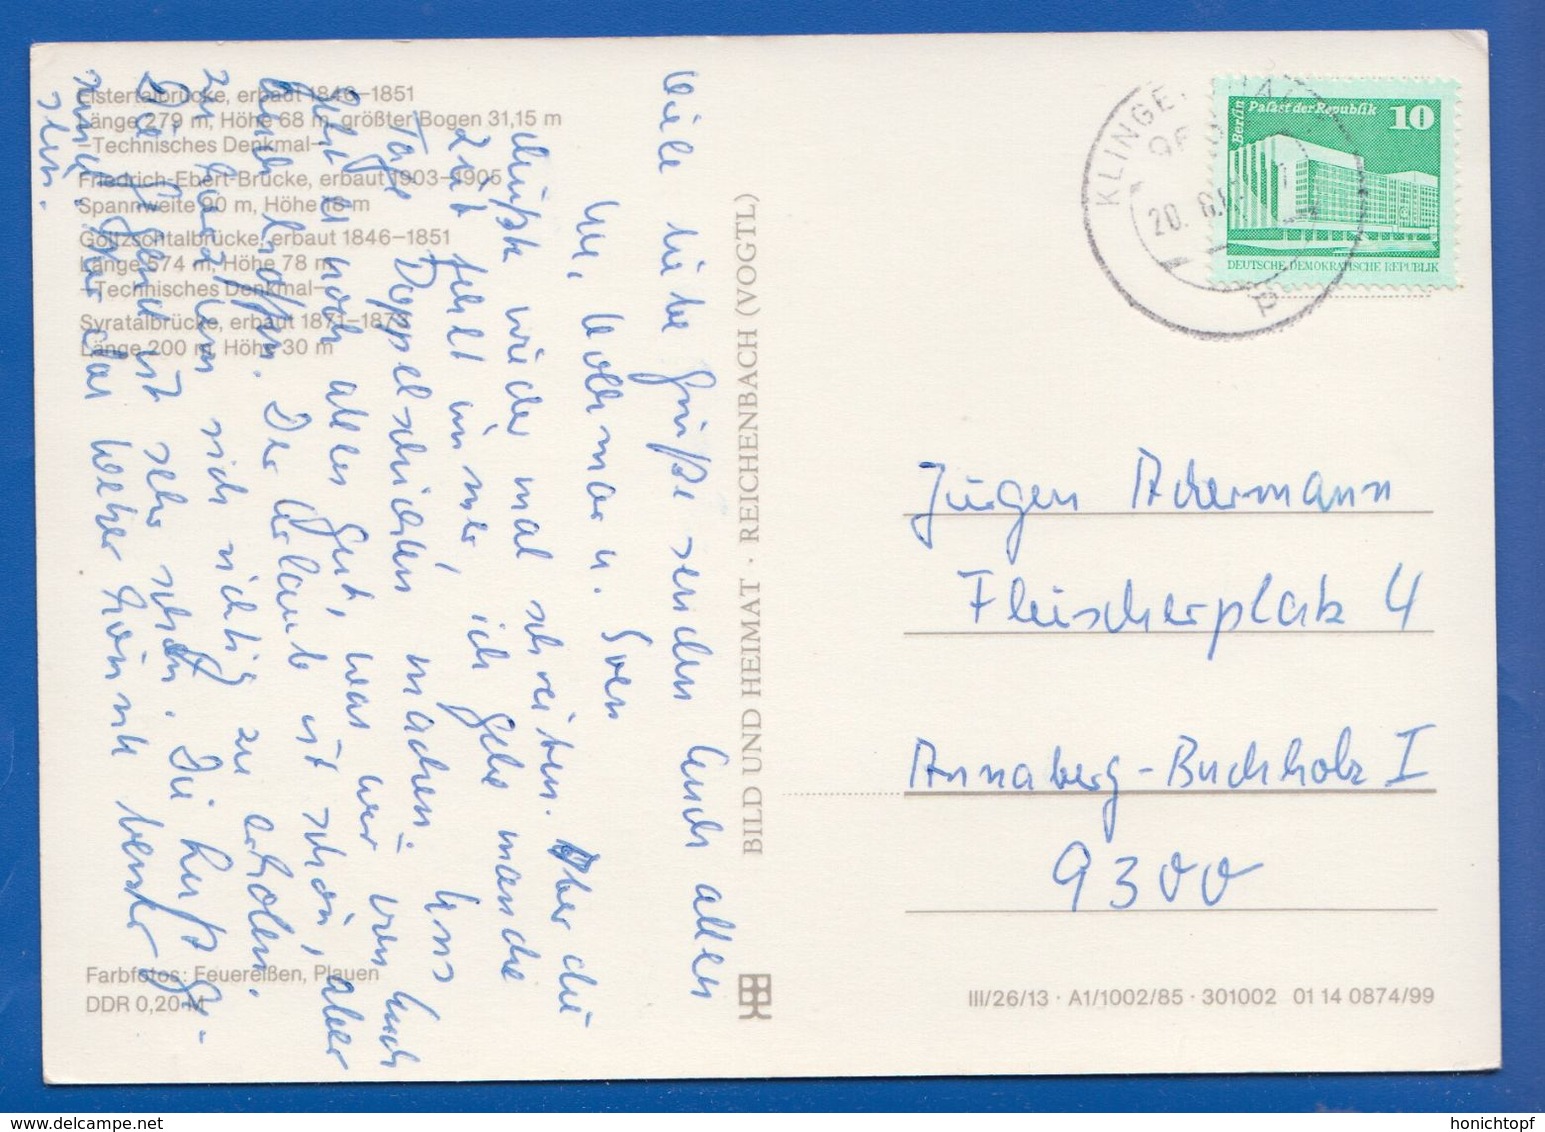 Elstertalbrücke, erbaut 1846–1851
Länge 279 m, Höhe 68 m, größter Bogen 31,15 m
–Technisches Denkmal–
Friedrich-Ebert-Brücke, erbaut 1903–1905
Spannweite 90 m, Höhe 18 m
Göltzschtalbrücke, erbaut 1846–1851
Länge 574 m, Höhe 78 m
–Technisches Denkmal–
Syratalbrücke, erbaut 1871–187
Länge 200 m, Höhe 30 m
Viele liebe Grüße senden Euch allen
Ute, Volkmar u. Sven
Müßte wieder mal schreiben. Aber die
Zeit fehlt immer, ich gehe manche
Tage Doppelschichten machen. Uns
geht es noch allen gut, was wir von Euch
auch hoffen. Der Urlaub ist schön, aber
zu kurz um sich richtig zu erholen.
Die Gegend ist sehr schön. Die heißt
nur das Wetter könnte besser
sein.
Farbfotos: Feuereißen, Plauen
DDR 0,20 M
BILD UND HEIMAT · REICHENBACH (VOGTL)
KLINGE
20.
Berlin
Palast der Republik
10
DEUTSCHE DEMOKRATISCHE REPUBLIK
Jürgen Ackermann
Fleischerplatz 4
Annaberg-Buchholz I
9300
III/26/13 · A1/1002/85 · 301002 01 14 0874/99
honichtopf